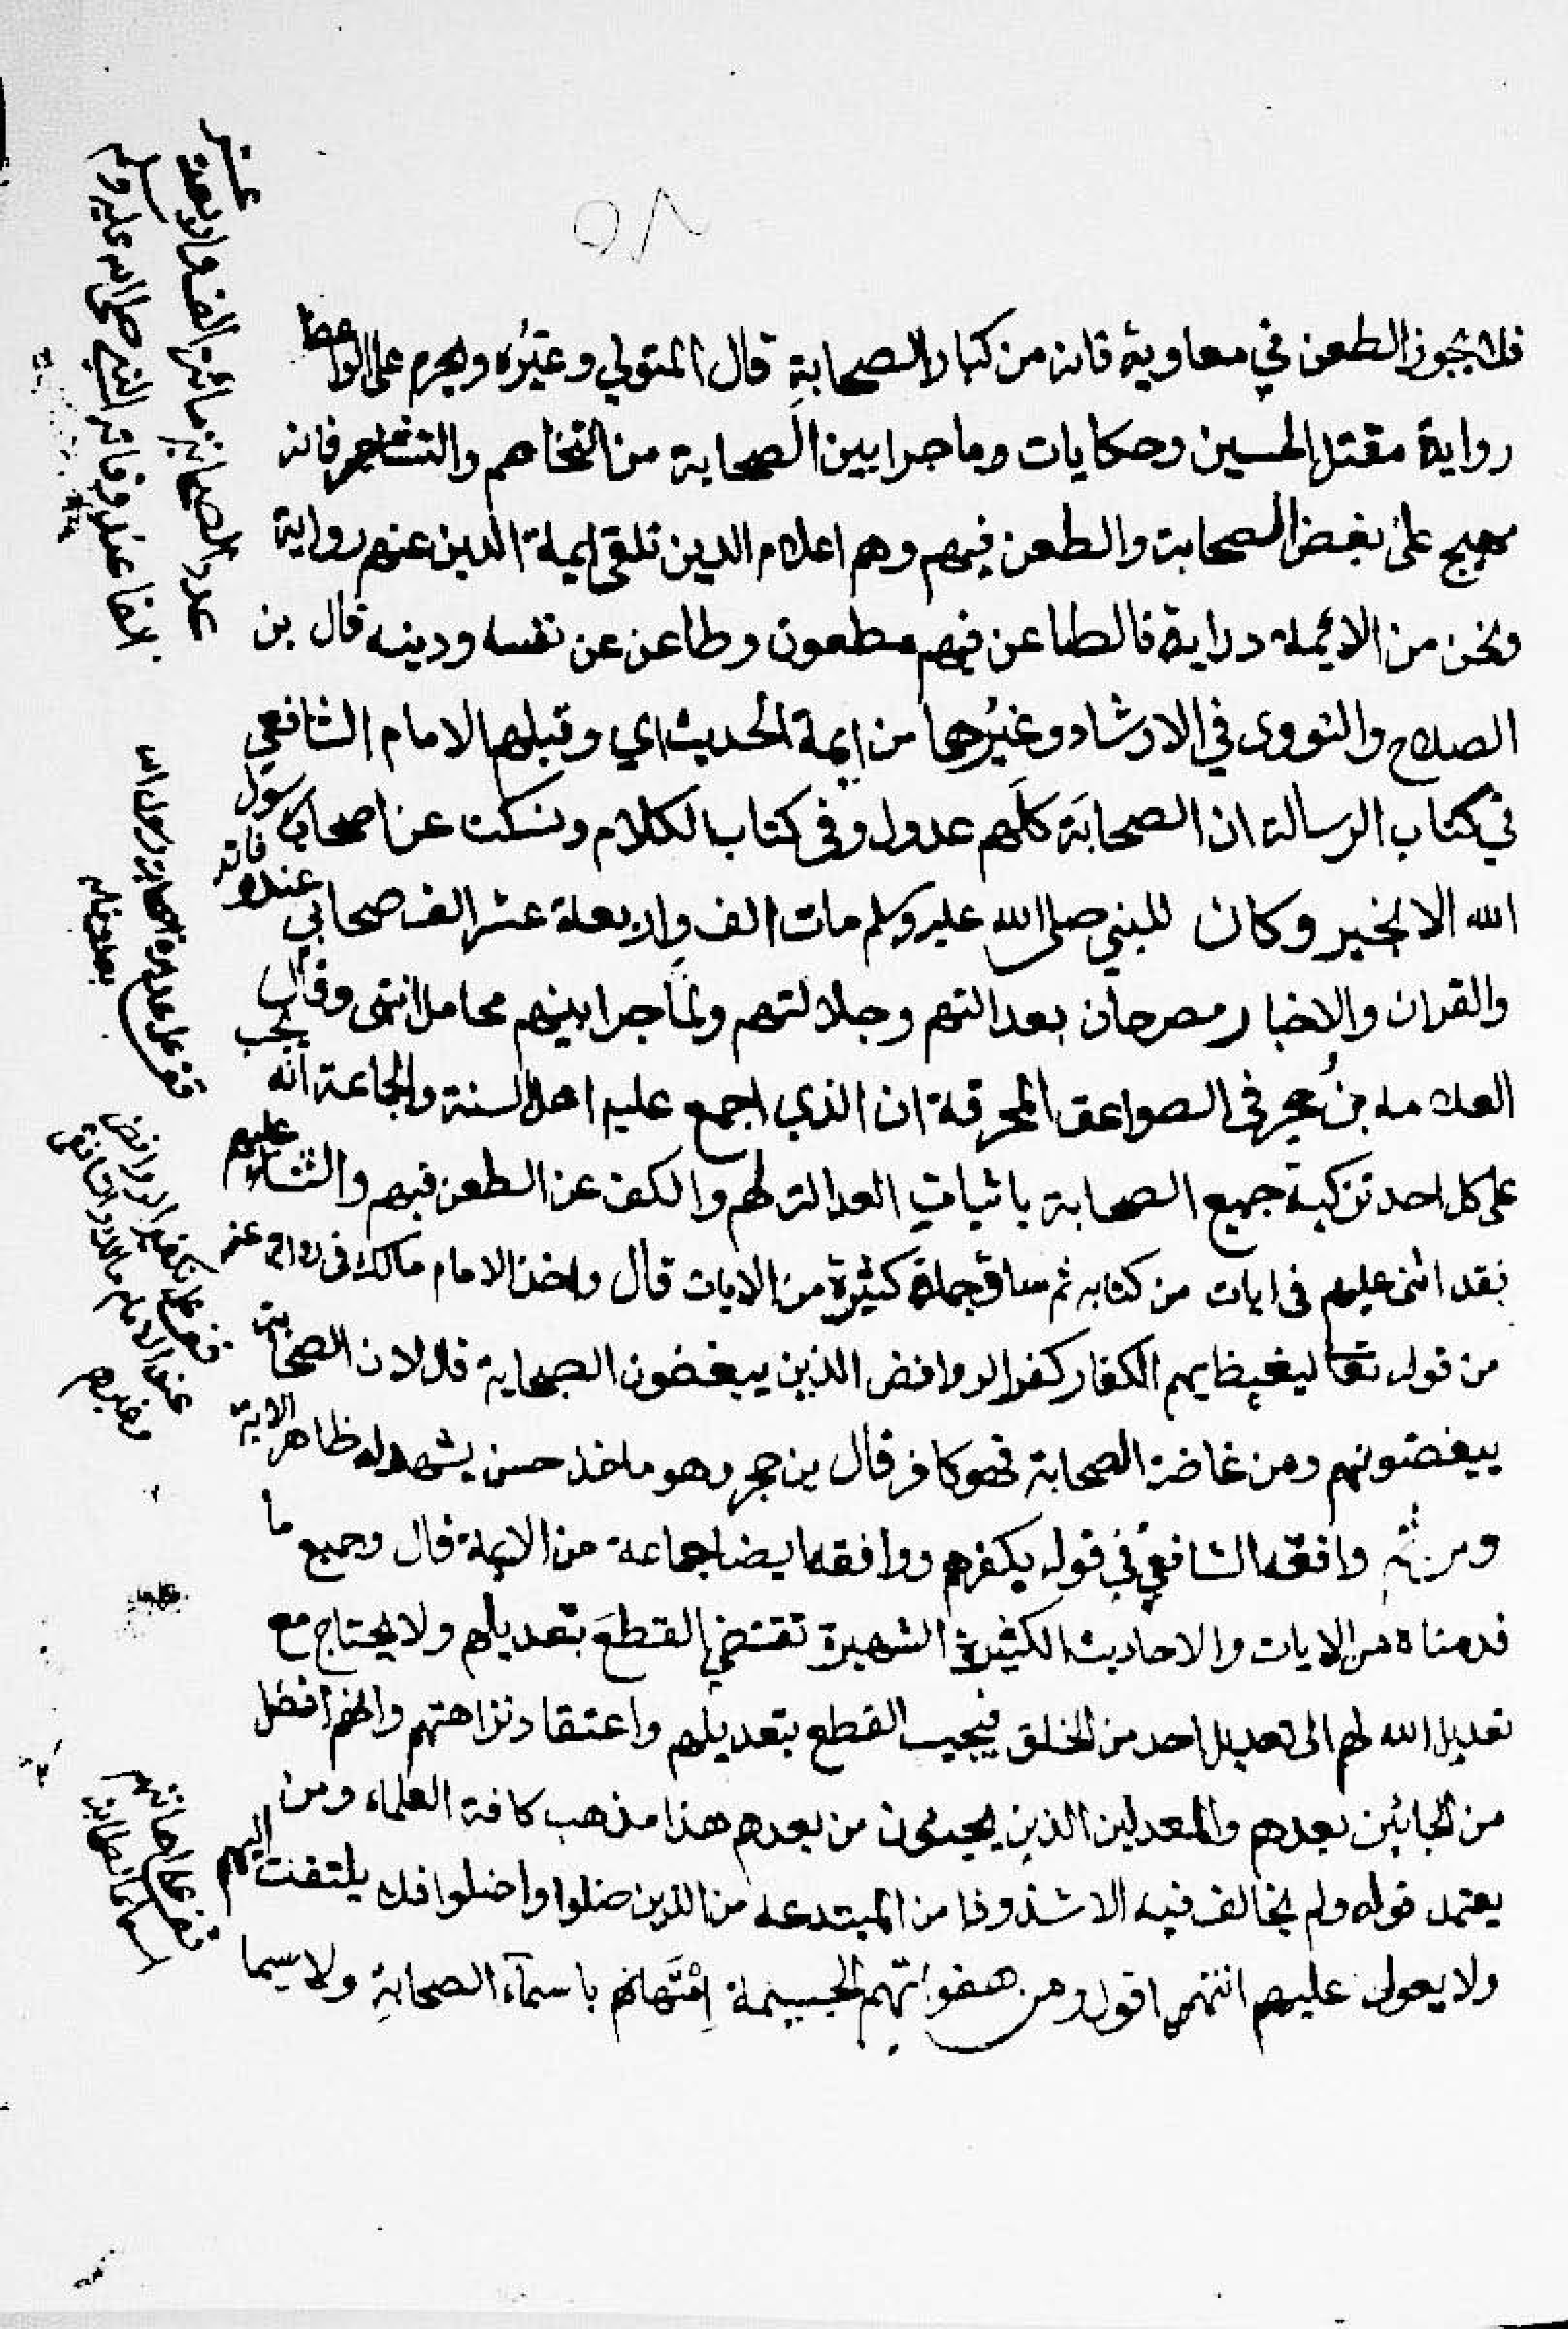 ٥٨
فلا يجوز الطعن في معاوية فانه من كبار الصحابة قال المتولي وغيره ويحرم على الواعظ
رواية مقتل الحسين وحكايات وما جرا بين الصحابة من التخاصم والتشاجر فانه
مهيج على بغض الصحابة والطعن فيهم وهم اعلام الدين تلقى ايمة الدين عنهم رواية
ونحن من الائمة دراية فالطاعن فيهم مطعون وطاعن عن نفسه ودينه قال بن
الصلاح والنووى في الارشاد وغيرهما من ايمة الحديث اي وقبلهما الامام الشافعي
في كتاب الرسالة ان الصحابة كلهم عدول وفى كتاب الكلام ونسكت عن اصحاب رسول
الله الا بخير وكان للنبي صلى الله عليه وسلم مات الف واربعة عشر الف صحابي عند وفاته
والقران والاخبار مصرحان بعدالتهم وجلالتهم ولما جرا بينهم محامل انتهى وقال
العلامه بن حجر فى الصواعق المحرقة ان الذي اجمع عليه اهل السنة والجماعة انه يجب
على كل احد تزكية جميع الصحابة باثبات العدالة لهم والكف عن الطعن فيهم والثناء عليهم
فقد اثنى عليهم فى ايات من كتابه ثم ساق جملة كثيرة من الايات قال واخذ الامام مالك فى رواية عنه
من قوله تعالى ليغيظ بهم الكفار كفر الروافض الذين يبغضون الصحابة قال لان الصحابة
يبغضونهم ومن غاضه الصحابة فهو كافر قال بن حجر وهو ماخذ حسن يشهد له ظاهر الاية
ومن ثم وافقه الشافعي في قوله بكفرهم ووافقه ايضا جماعة من الايمة قال وجميع ما
قدمناه من الايات والاحاديث الكثيرة الشهيرة تقتضي القطع بتعديلهم ولا يحتاج مع
تعديل الله لهم الى تعديل احد من الخلق فيجب القطع بتعديلهم واعتقاد نزاهتهم وانهم افضل
من الجائين بعدهم والمعدلين الذين يجيئون من بعدهم هذا مذهب كافة العلماء ومن
يعتمد قوله ولم يخالف فيه الا شذوذا من المبتدعه من الذين ضلوا واضلوا فلا يلتفت اليهم
ولا يعول عليهم انتهى اقول ومن هفواتهم الجسيمة امتهانهم باسماء الصحابة ولا سيما
عدد الصحابة مائة الف واربعة عشر
الفا عند وفاة النبي صلى الله عليه وسلم
قف على عدد الصحابة رسول الله
بعد وفاته
قف على تكفير الروافض
عند الامام مالك والشافعي
وغيرهم
قف على اهانتهم
اسماء الصحابة